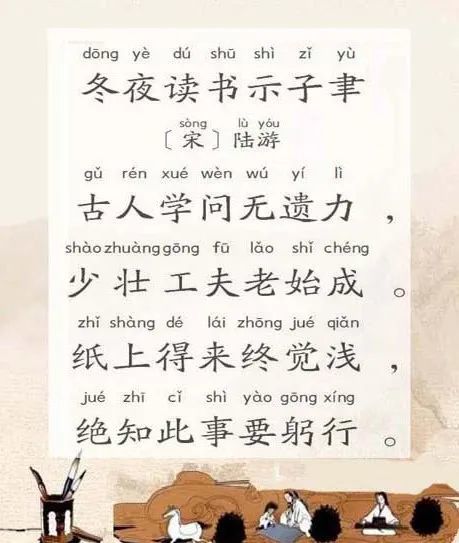 dōng yè dú shū shì zǐ yù
冬夜读书示子聿
sòng lù yóu
〔宋〕陆游
gǔ rén xué wèn wú yí lì
古人学问无遗力，
shào zhuàng gōng fū lǎo shǐ chéng
少壮工夫老始成。
zhǐ shàng dé lái zhōng jué qiǎn
纸上得来终觉浅，
jué zhī cǐ shì yào gōng xíng
绝知此事要躬行。